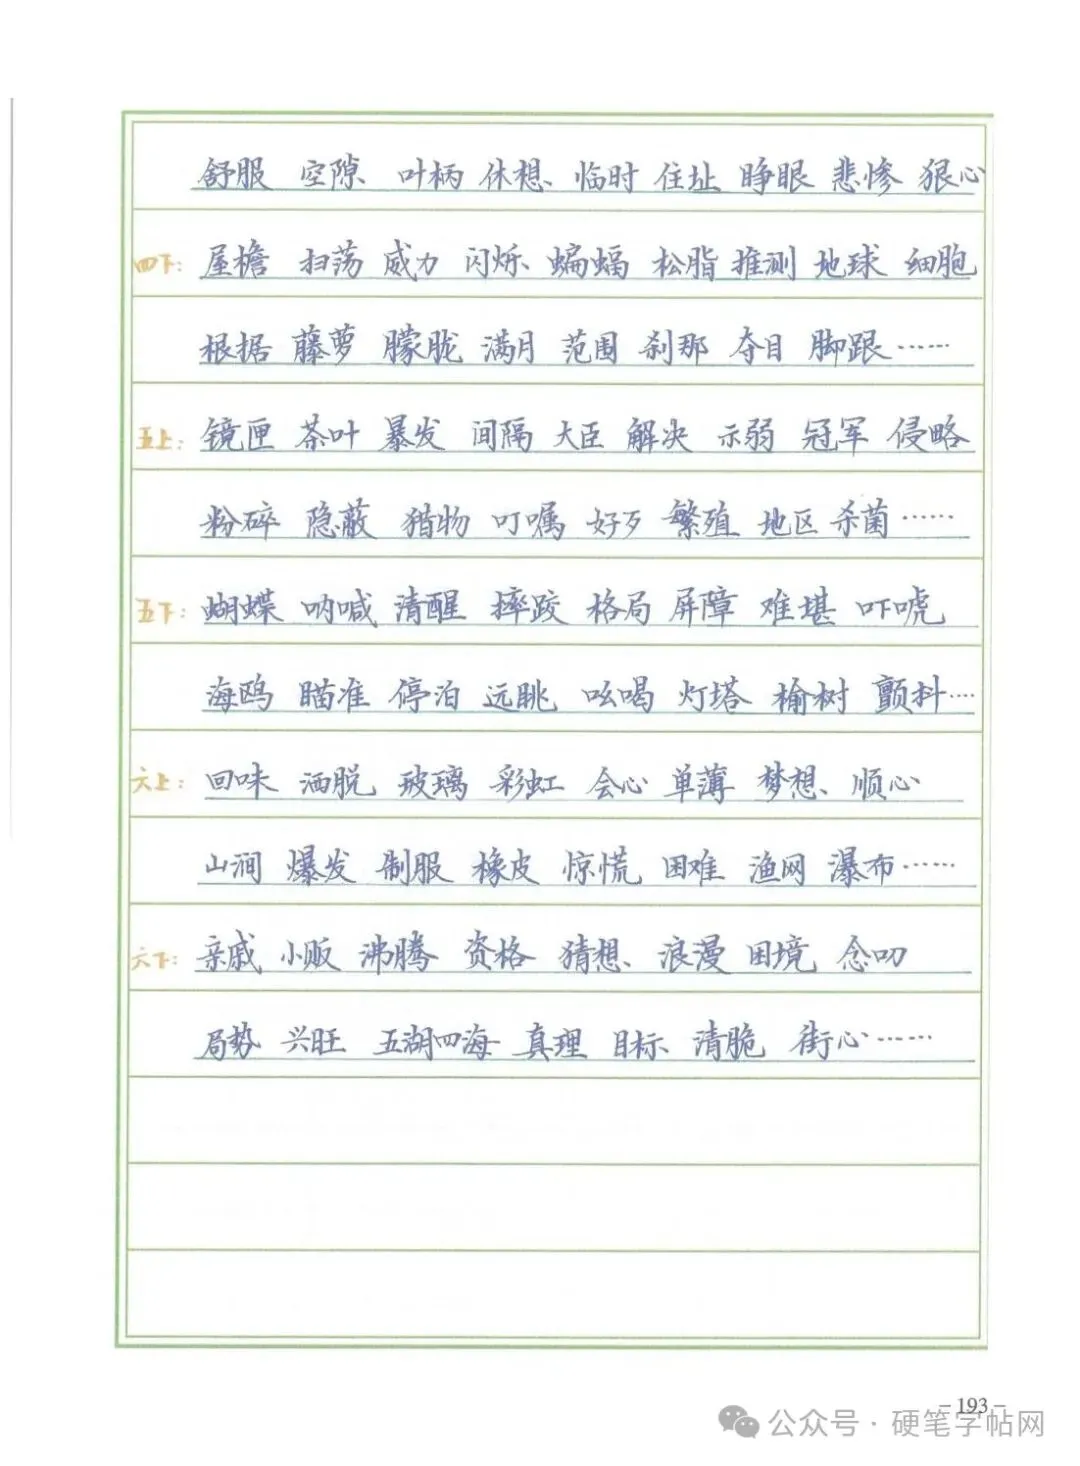 舒服 空隙 叶柄 休想 临时 住址 睁眼 悲惨 狠心
四下: 屋檐 扫荡 威力 闪烁 蝙蝠 松脂 推测 地球 细胞
根据 藤萝 朦胧 满月 范围 刹那 夺目 脚跟……
五上: 镜匣 茶叶 暴发 间隔 大臣 解决 示弱 冠军 侵略
粉碎 隐蔽 猎物 叮嘱 好歹 繁殖 地区 杀菌……
五下: 蝴蝶 呐喊 清醒 摔跤 格局 屏障 难堪 吓唬
海鸥 瞄准 停泊 远眺 吆喝 灯塔 榆树 颤抖……
六上: 回味 洒脱 玻璃 彩虹 会心 单薄 梦想 顺心
山涧 爆发 制服 橡皮 惊慌 困难 渔网 瀑布……
六下: 亲戚 小贩 沸腾 资格 猜想 浪漫 困境 念叨
局势 兴旺 五湖四海 真理 目标 清脆 街心……
-193-
公众号·硬笔字帖网